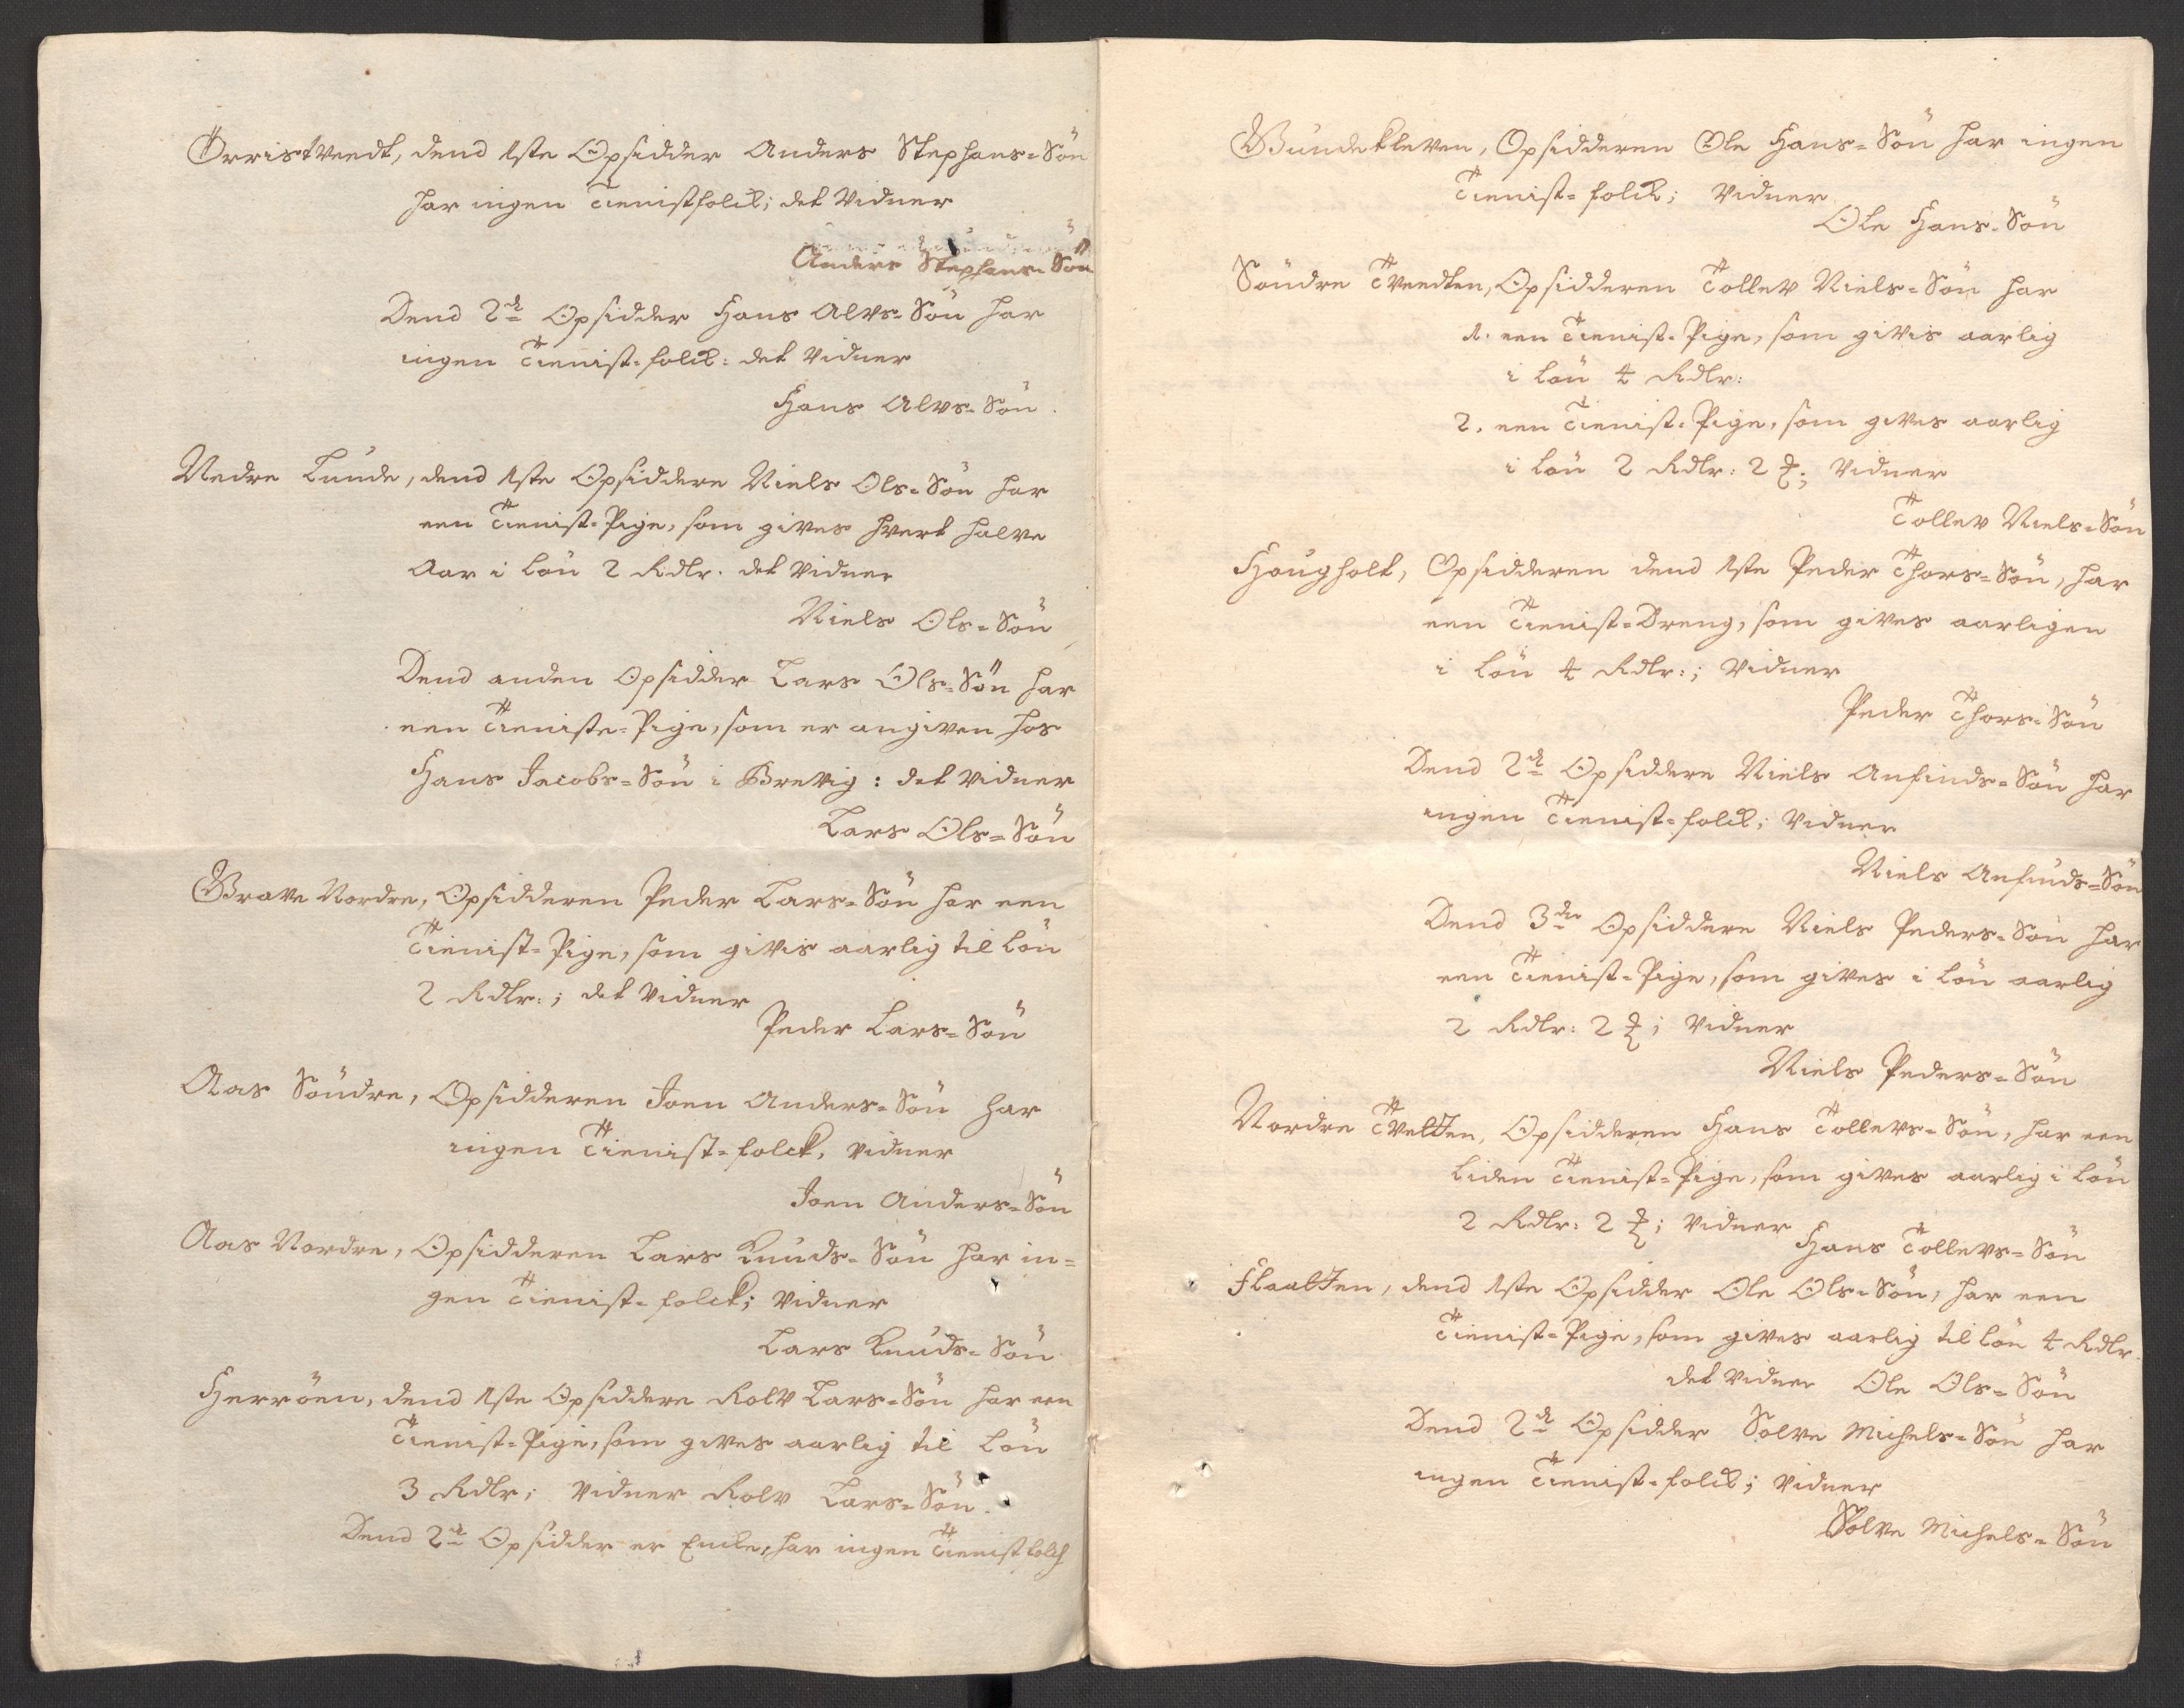 Örristvendt, dend 1ste Opsidder Anders Stephans=Sön
har ingen Tienistfolck; det Vidner
Anders Stephans=Sön
Dend 2den Opsidder Hans Alvs=Sön har
ingen Tienist=folck: det Vidner
Hans Alvs=Sön.
Nedre Lunde, dend 1ste Opsiddere Niels Ols=Sön har
een Tienist=Pige, som gives hvert halve
Aar i Lön 2 Rdlr. det Vidner
Niels Ols=Sön
Dend anden Opsidder Lars Ols=Sön har
een Tieniste=Pige, som er angiven hos
Hans Jacobs=Sön i Brevig: det Vidner
Lars Ols=Sön
Grave Nordre, Opsidderen Peder Lars=Sön har een
Tienist=Pige, som givis aarlig til Lön
2 Rdlr:; det Vidner
Peder Lars=Sön
Aas Söndre, Opsidderen Joen Anders=Sön har
ingen Tienist=folck, Vidner
Joen Anders=Sön
Aas Nordre, Opsidderen Lars Knuds=Sön har in=
gen Tienist=folck; Vidner
Lars Knuds=Sön
Herröen, dend 1ste Opsiddere Rolv Lars=Sön har een
Tienist=Pige, som gives aarlig til Lön
3 Rdlr; Vidner Rolv Lars=Sön.
Dend 2den Opsidder er Encke, har ingen Tienistfolch
Bundekleven, Opsidderen Ole Hans=Sön har ingen
Tienist=folck; Vidner
Ole Hans=Sön
Söndre Tvedten, Opsidderen Tollev Niels=Sön har
1. een Tienist=Pige, som givis aarlig
i Lön 4 Rdlr:
2. een Tienist=Pige, som gives aarlig
i Lön 2 Rdlr: 2 ; Vidner
Tollev Niels=Sön
Hougholt, Opsidderen dend 1ste Peder Thors=Sön, har
een Tienist=Dreng, som gives aarligen
i Lön 4 Rdlr:; Vidner
Peder Thors=Sön
Dend 2den Opsiddere Niels Anfinds=Sön har
ingen Tienist=folck; Vidner
Niels Anfinds=Sön
Dend 3die Opsiddere Niels Peders=Sön har
een Tienist=Pige, som gives i Lön aarlig
2 Rdlr: 2 ; Vidner
Niels Peders=Sön
Nordre Tvetten, Opsidderen Hans Tollevs=Sön, har een
Liden Tienist=Pige, som gives aarlig i Lön
2 Rdlr: 2 ; Vidner
Hans Tollevs=Sön
Flaatten, dend 1ste Opsidder Ole Ols=Sön, har een
Tienist=Pige, som gives aarlig til Lön 4 Rdlr.
det Vidner Ole Ols=Sön
Dend 2den Opsidder Solve Michels=Sön har
ingen Tienist=folck; Vidner
Solve Michels=Sön